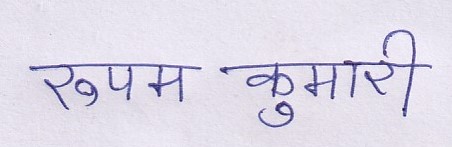 रुपम कुमारी